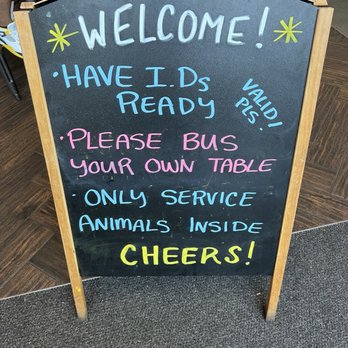 WELCOME!
· HAVE I.Ds
READY
VALID!
PLS!
· PLEASE BUS
YOUR OWN TABLE
· ONLY SERVICE
ANIMALS INSIDE
CHEERS!